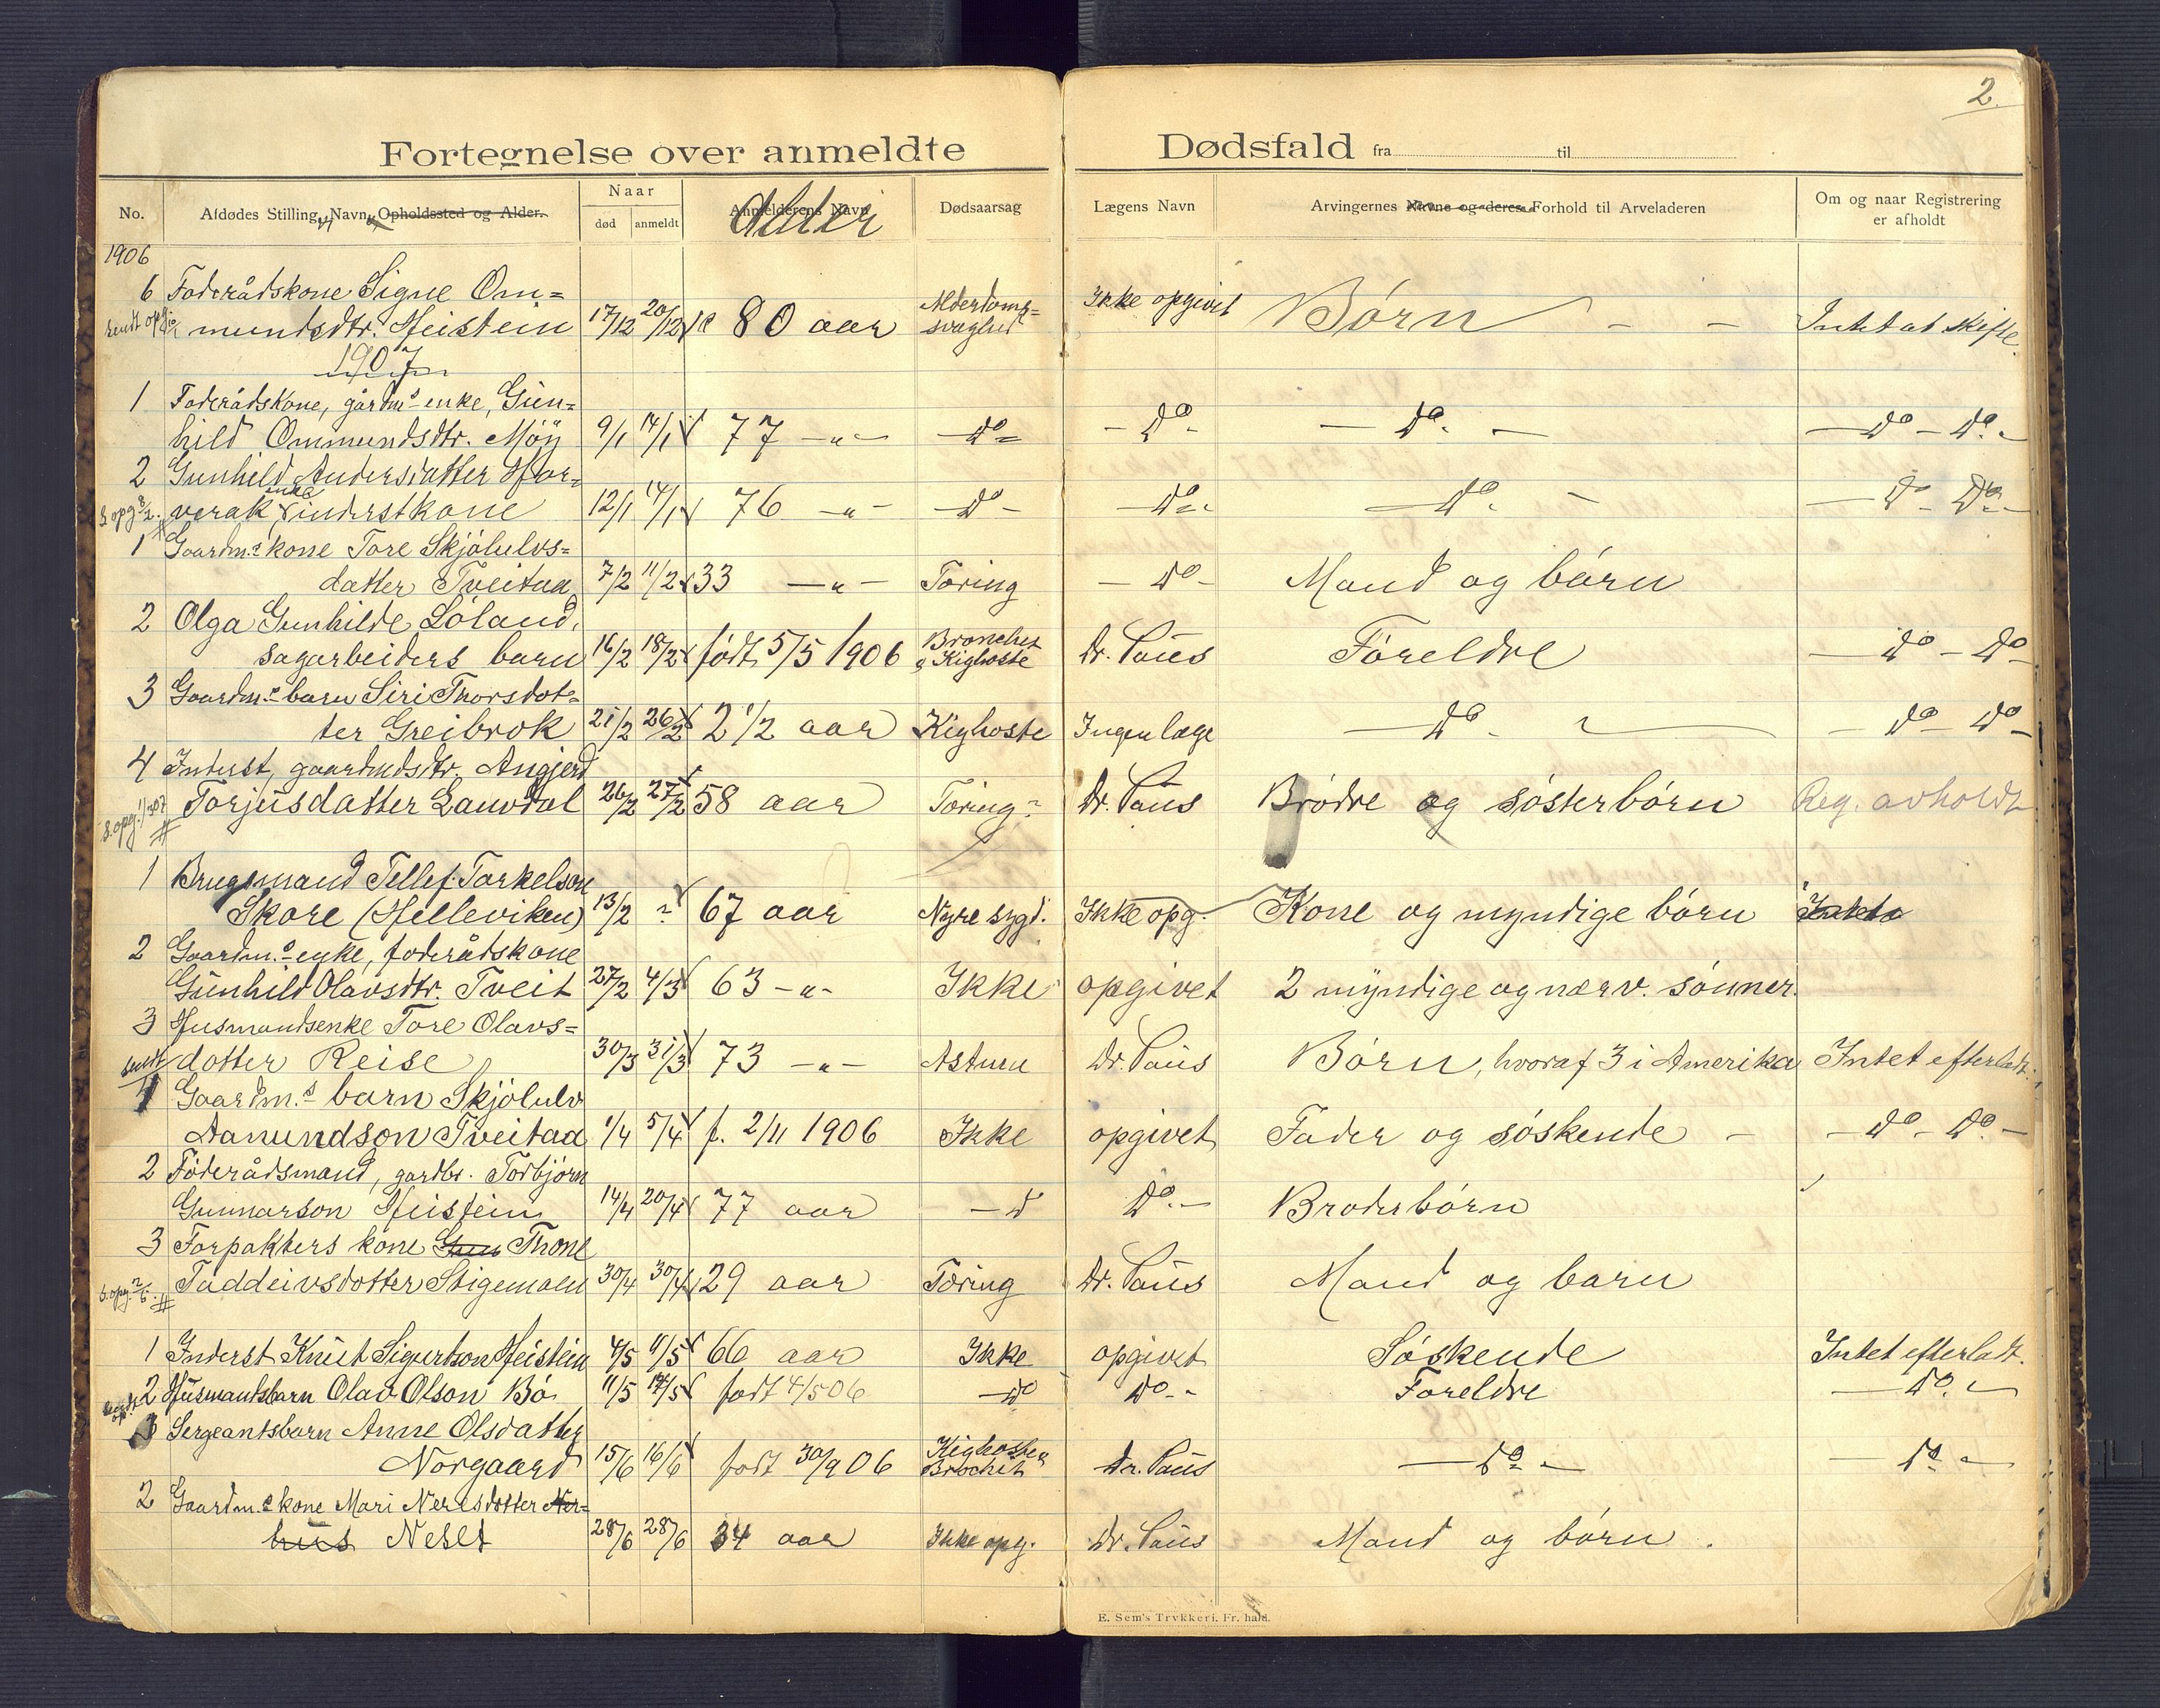 2.
Fortegnelse over anmeldte Dødsfald fra til
No. Afdødes Stilling, Navn, Opholdssted og Alder. Naar død anmeldt Anmelderens Navn Alder Dødsaarsag Lægens Navn Arvingernes Navne og deres Forhold til Arveladeren Om og naar Registrering er afholdt
1906
6 Foderådskone Signe Om=
mundsdtr. Heistein 17/12 20/12 80 aar Alderdoms= svaghed Ikke opgivet Børn - - Intet at skifte
1907
1 Foderådskone, gårdms enke, Gun=
hild Ommundsdtr. Möy 9/1 14/1 77 -"- do - do - - do. - - do - do. -
2 Gunhild Andersdatter Hor=
verak enke inderstkone 12/1 14/1 76 -"- - do - - do - - do. - - do - do -
1 Gaardms kone Tore Skjölulvs=
datter Tveitaa 7/2 11/2 33 -"- Tæring - do - Mand og børn
2 Olga Gunhilde Löland,
sagarbeiders barn 16/2 18/2 født 5/5 1906 Bronchit & Kighoste Dr. Paus Foreldre - do - do -
3 Gaardms barn Siri Thorsdot=
ter Greibrok 21/2 26/2 2 1/2 aar Kighoste Ingen læge - do - - do - do -
4 Inderst, gaardmdsdtr. Angjerd
Torjusdatter Lauvdal 26/2 27/2 58 aar Tæring Dr. Paus Brødre og søsterbørn Reg. avholdt
1 Brugsmand Tellef Tarkelson
Skore (Helleviken) 13/2 ? 67 aar Nyresygd. Ikke opg. Kone og myndige børn Intet
2 Gaardms enke, foderådskone
Gunhild Olavsdtr. Tveit 27/2 4/3 63 -"- Ikke opgivet 2 myndige og nærv. sønner.
3 Husmandsenke Tore Olavs=
dotter Reise 30/3 31/3 73 -"- Astma Dr. Paus Børn, hvoraf 3 i Amerika Intet efterladt.
1 Gaardm.s barn Skjölulv
Aanundson Tveitaa 1/4 5/4 f. 2/11 1906 Ikke opgivet Fader og søskende - - do - do. -
2 Föderådsmand, gardbr. Torbjörn
Gunnarson Heistein 14/4 20/4 77 aar - do do. - Broderbørn
3 Forpakters kone Gun Thone
Taddeivsdotter Stigemoen 30/4 30/4 29 aar Tæring Dr. Paus Mand og barn
1 Inderst Knut Sigurtson Heistein 4/5 11/5 66 aar Ikke opgivet Søskende Intet efterladt.
2 Husmandsbarn Olav Olson Bö 11/5 14/5 født 4/5 06 - do do. - Foreldre - do. -
1 Sergeantsbarn Anne Olsdatter
Norgaard 15/6 16/6 født 30/9 06 Kighoste & Brochit Dr. Paus - do - - do -
2 Gaardm.s kone Mari Neresdotter Ner=
hus Neset 28/6 28/6 34 aar Ikke opg. Dr. Paus Mand og børn.
E. Sem's Trykkeri, Fr.hald.